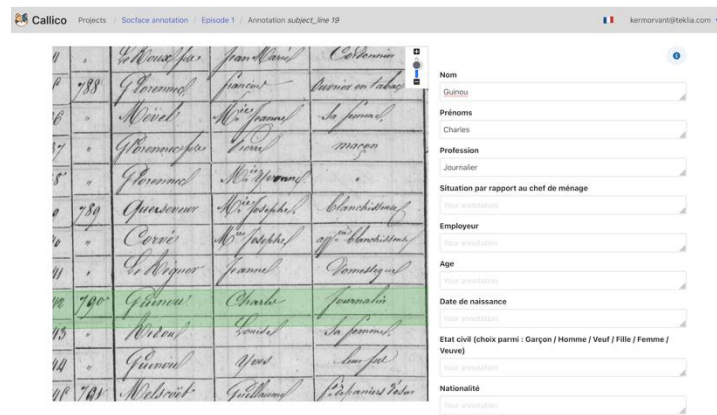 Callico Projects / Socface annotation / Episode 1 / Annotation subject_line 19
kermorvant@teklia.com
" Le Roux fils Jean Marie Cordonnier
788 Glorennec françois Ouvrier en tabac
" Mével Mie Jeanne Sa femme
Glorennec fils Pierre maçon
" Glorennec Mie Yvonne "
789 Querseveur Mie Josèphe blanchisseuse
" Corvé Mie Josèphe blanchisseuse
" Le Bigner Jeanne Domestique
790 Guinou Charles Journalier
43 " Louise Sa femme
44 " Guinou Yves leur fils
791 Melscoët Guillaume
Nom
Guinou
Prénoms
Charles
Profession
Journalier
Situation par rapport au chef de ménage
Your annotation
Employeur
Your annotation
Age
Your annotation
Date de naissance
Your annotation
Etat civil (choix parmi : Garçon / Homme / Veuf / Fille / Femme /
Veuve)
Your annotation
Nationalité
Your annotation